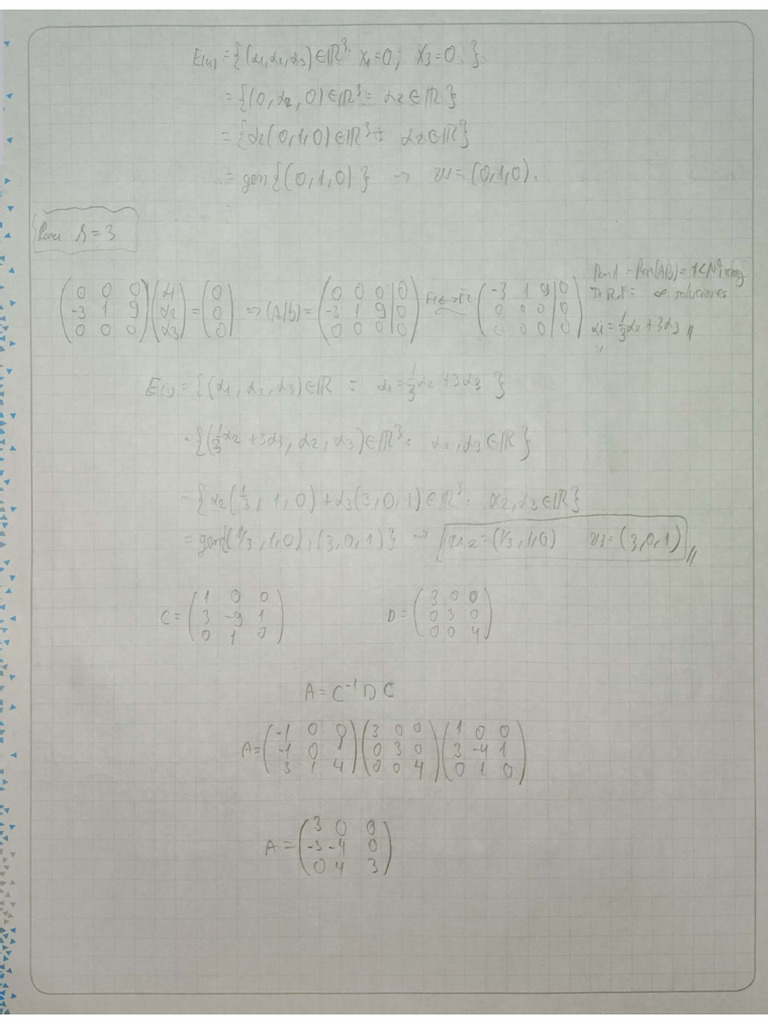 E(4) = {(α1,α2,α3)∈ℝ³: x1=0; x3=0 }
= {(0,α2,0)∈ℝ³: α2∈ℝ}
= {α2(0,1,0)∈ℝ³: α2∈ℝ}
= gen{(0,1,0)} → u1=(0,1,0).
Para λ=3
(0 0 0; -3 1 9; 0 0 0)(α1; α2; α3) = (0; 0; 0) ⇒ (A|b) = (0 0 0|0; -3 1 9|0; 0 0 0|0) F1↔F2 (-3 1 9|0; 0 0 0|0; 0 0 0|0)
∞ soluciones
α1=1/3α2+3α3 //
= {(α1,α2,α3)∈ℝ : α1=1/3α2+3α3 }
= {(1/3α2+3α3, α2, α3)∈ℝ³: α2,α3∈ℝ}
= {α2(1/3,1,0)+α3(3,0,1)∈ℝ³: α2,α3∈ℝ}
= gen{(1/3,1,0),(3,0,1)} → u2=(1/3,1,0) u3=(3,0,1) //
C=(1 0 0; 3 -9 1; 0 1 0) D=(3 0 0; 0 3 0; 0 0 4)
A=C⁻¹DC
A=(-1 0 0; -1 0 9; 3 1 4)(3 0 0; 0 3 0; 0 0 4)(1 0 0; 3 -4 1; 0 1 0)
A=(3 0 0; -3 -4 0; 0 4 3)